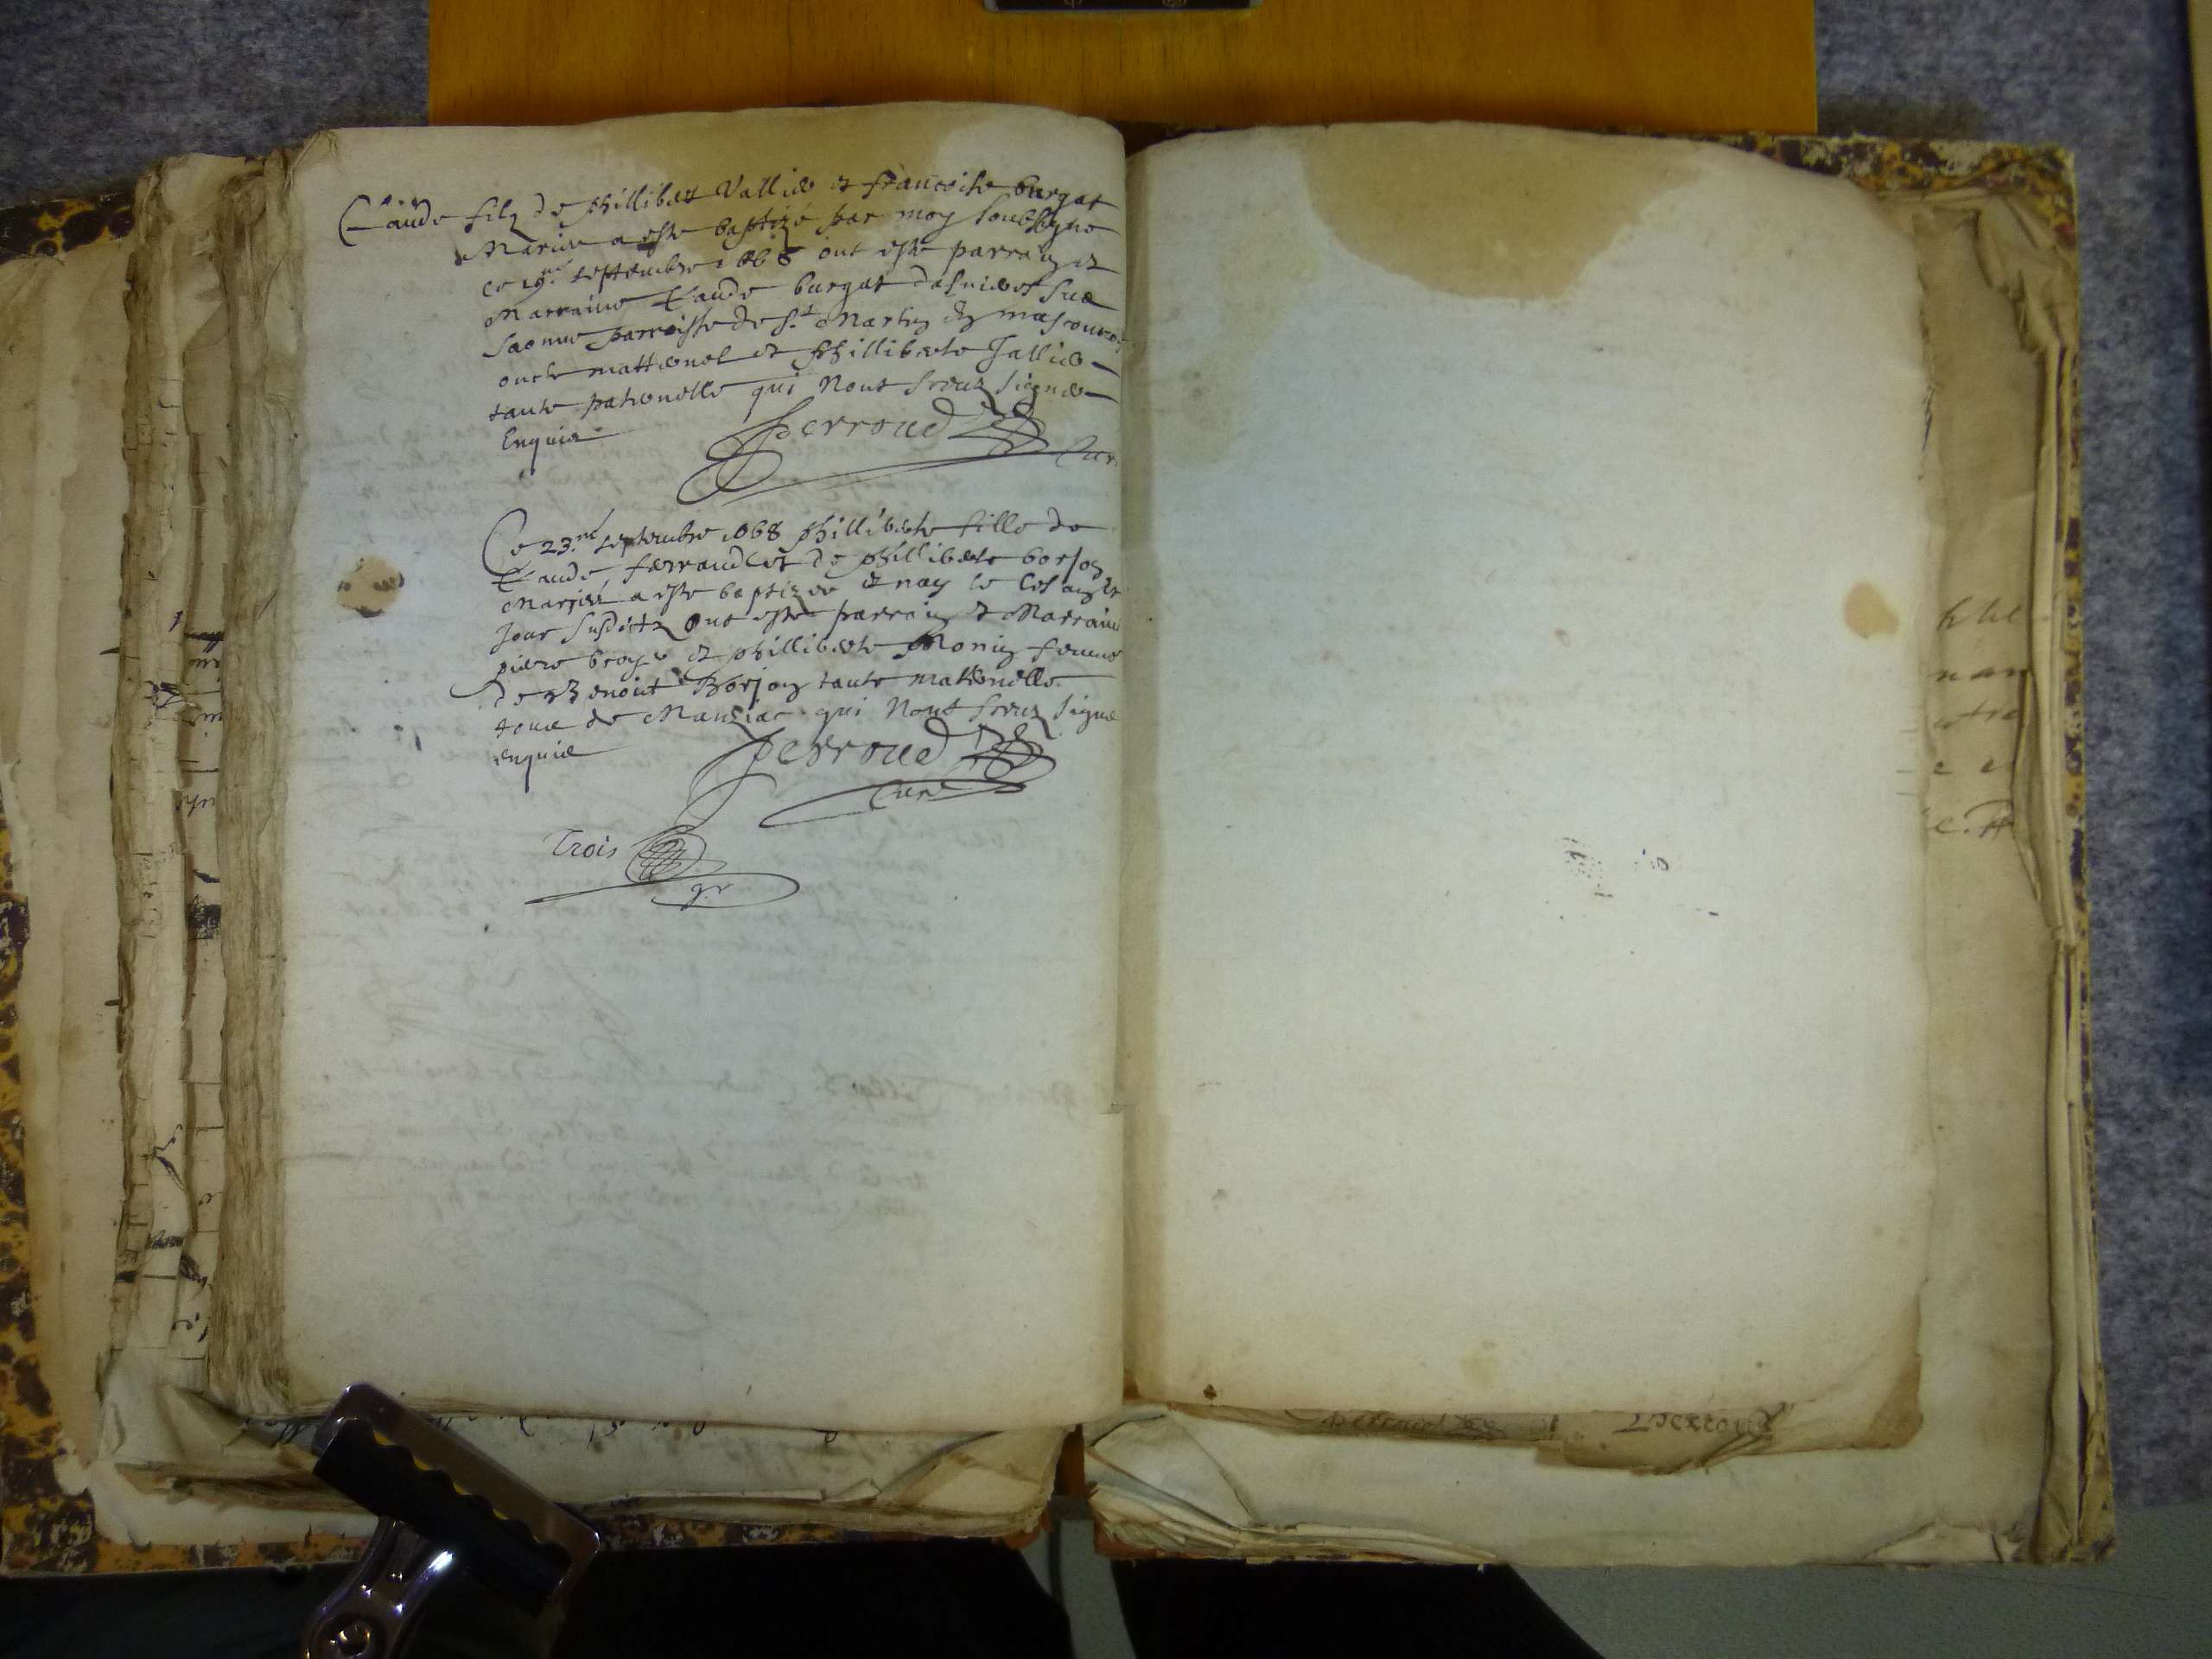 Claude filz de phillibert Vallier et francoise burgat
Mariez a este baptizé par moy soubsigne
ce 19.me septembre 1668 ont este parrain et
Marraine Claude burgat d'asnieres sur
saonne parroisse de s.t Martin
oncle matternel et phillibertte Vallier
tante paternelle qui n'ont sceuz signer
Enquis
Perroud
Curé
Ce 23.me septembre 1668 phillibertte fille de
Claude ferraud et de phillibertte borjon
Mariez a este baptizee et nay le
Jour susdictz ont este parrain et Marraine
piere et phillibertte Monin femme
de Benoist Borjon tante maternelle
tous de Manziac qui n'ont sceuz signer
enquis
Perroud
Curé
Trois